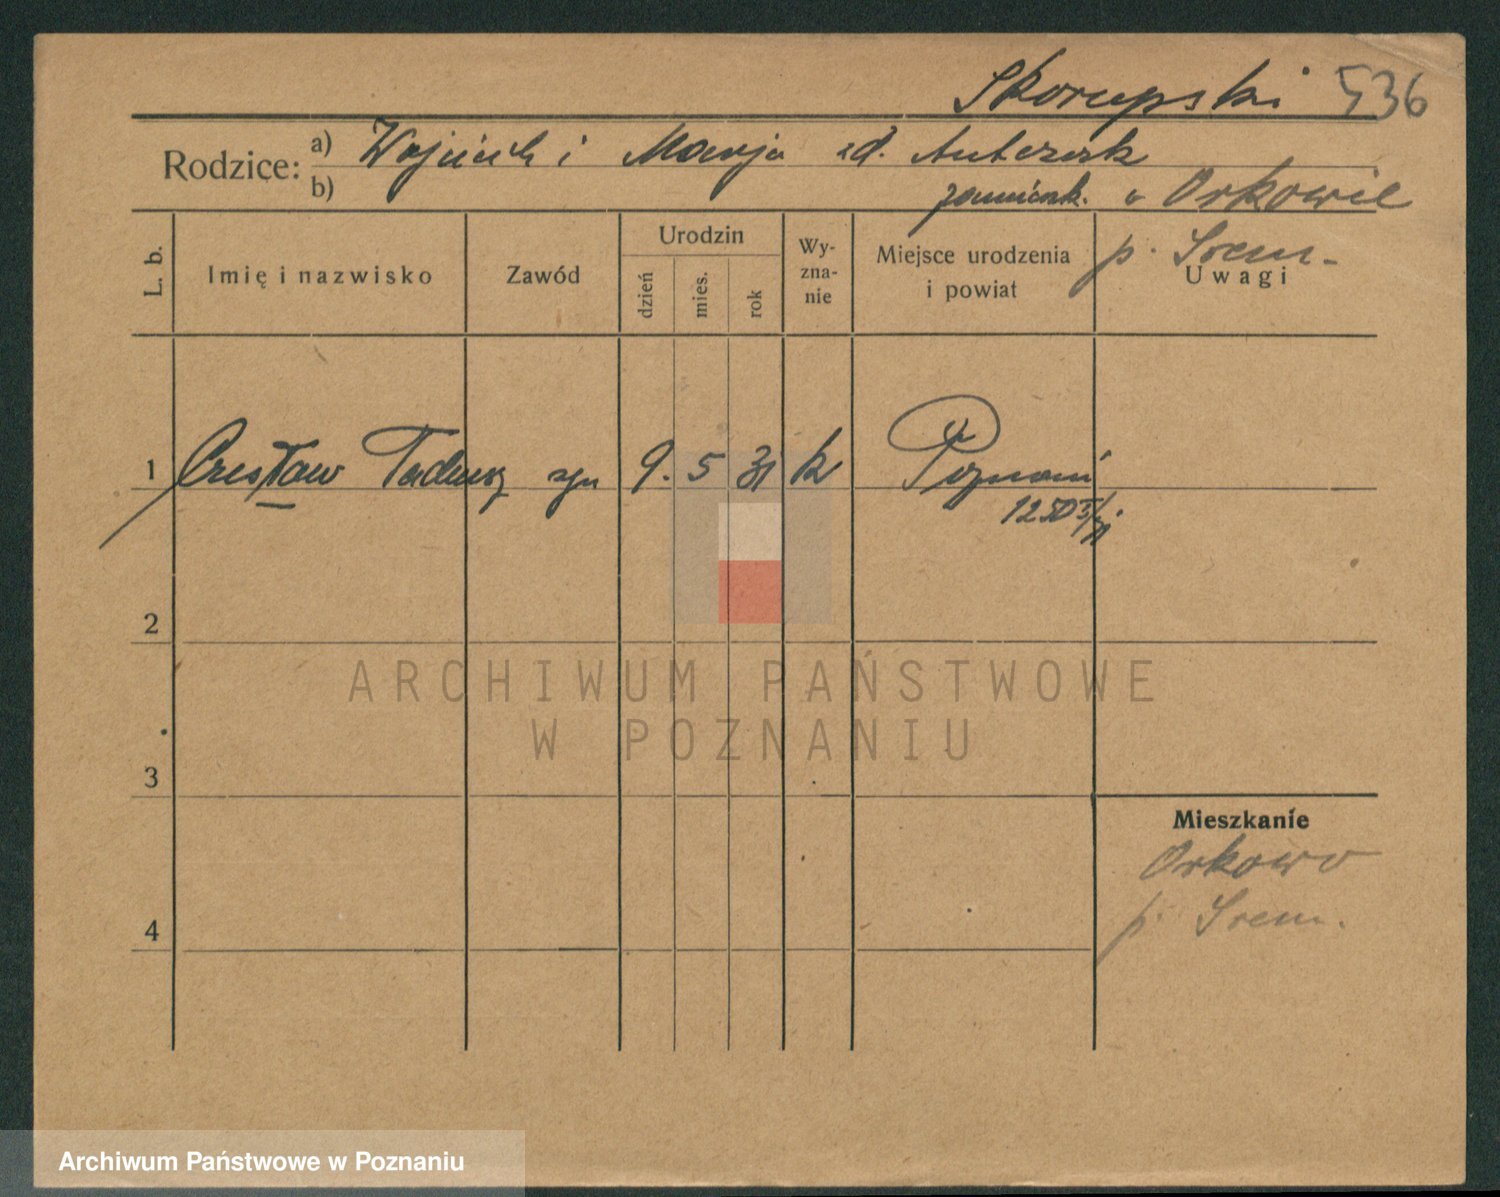 Skorupski 536
Rodzice: a) Wojciech i Marja zd. Antczak
b) zamieszk. w Orkowie
p. Srem.
L. b.
Imię i nazwisko
Zawód
Urodzin
dzień
mies.
rok
Wy-
zna-
nie
Miejsce urodzenia
i powiat
Uwagi
1 Czesław Tadeusz syn 9. 5 31 k Poznań
1250
2
3
4
Mieszkanie
Orkowo
p. Srem.
ARCHIWUM PAŃSTWOWE
W POZNANIU
Archiwum Państwowe w Poznaniu